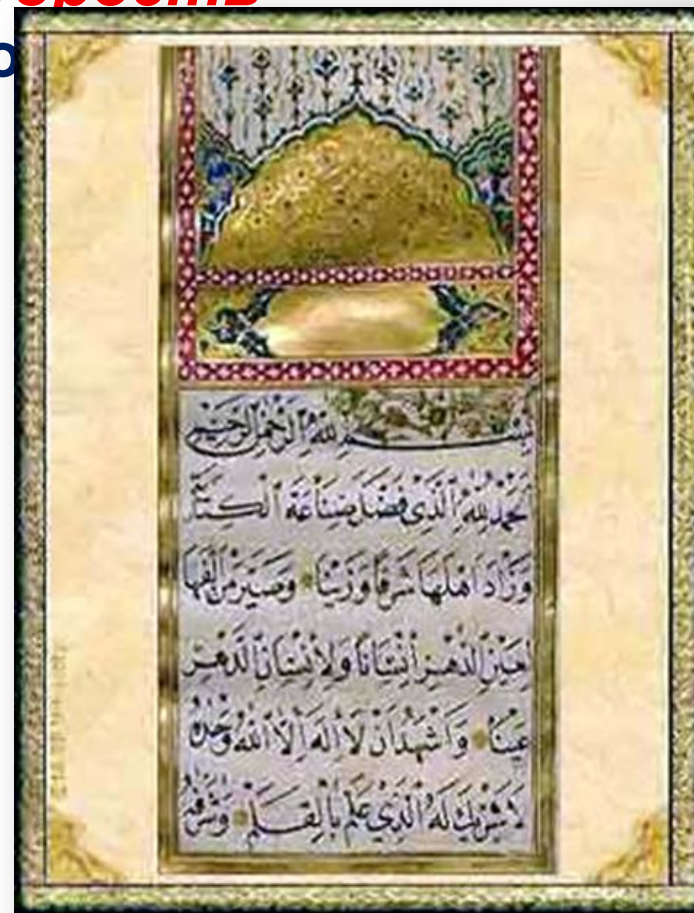 بسم الله الرحمن الرحيم
الحمد لله الذي فضل صناعة الكتابة
وزاد اهلها شرفا وزينا وصير من الفها
لعين الدهر انسانا ولانسان الدهر
عينا واشهد ان لا اله الا الله وحده
لا شريك له الذي علم بالقلم وشرفه